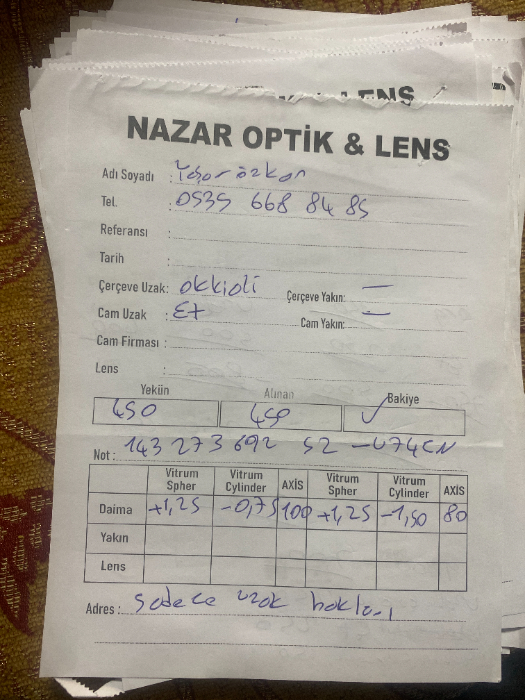 LENS
NAZAR OPTİK & LENS
Adı Soyadı : Yaşar özkan
Tel. : 0535 668 84 85
Referansı :
Tarih :
Çerçeve Uzak: okkioli Çerçeve Yakın: —
Cam Uzak : Ex Cam Yakın: —
Cam Firması :
Lens :
Yekün Alınan Bakiye
450 450 ✓
Not : 143 273 692 52
Vitrum Spher Vitrum Cylinder AXİS Vitrum Spher Vitrum Cylinder AXİS
Daima +1,25 -0,75 100 +1,25 -1,50 80
Yakın
Lens
Adres : Sadece uzak